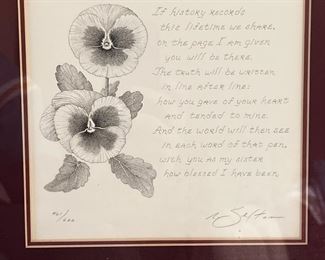 If history records
this lifetime we share,
on the page I am given
you will be there.
The truth will be written
in line after line:
how you gave of your heart
and tended to mine.
And the world will then see
in each word of that pen,
with you as my sister
how blessed I have been.